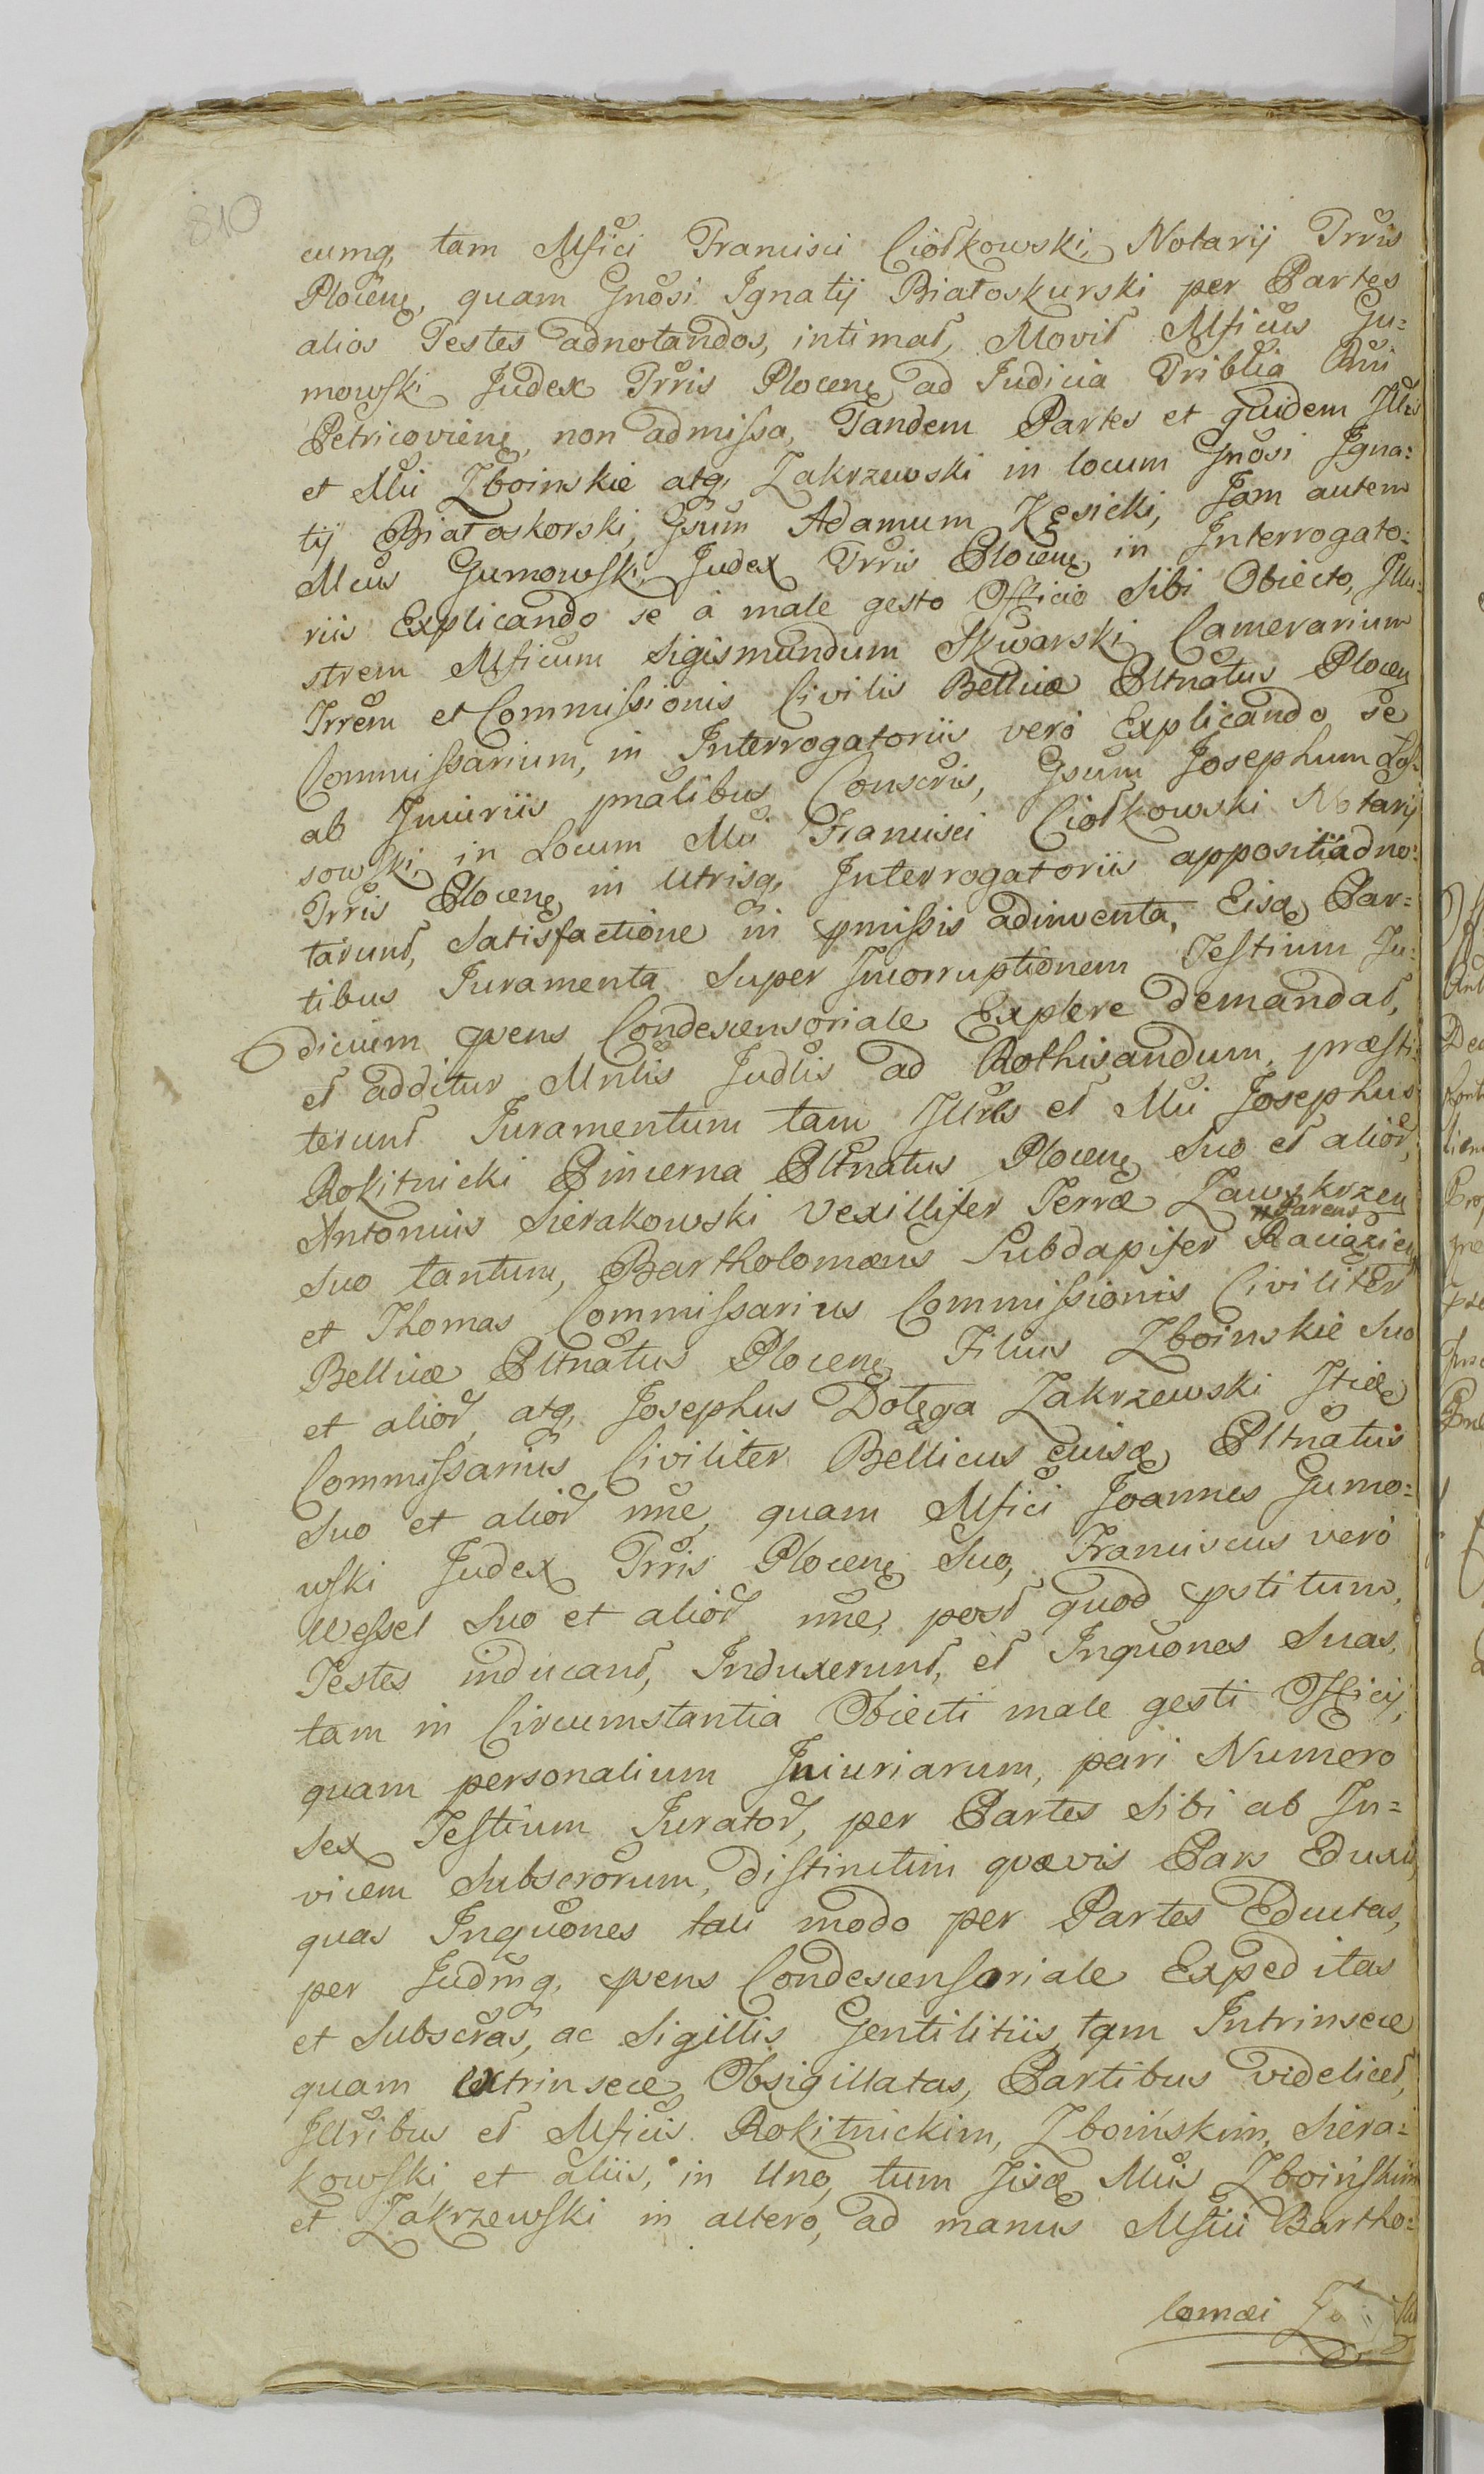 810
cumq, tam Mfici Francisci Ciołkowski Notarij Trris
Plocenẽ, quam Gnosi Ignatij Białoskurski per Partes
alios Testes adnotandos, intimat, Movit Mficus Gu=
mowski Judex Trris Plocenẽ ad Judicia Triblia Rni
Petricovienẽ, non admissa, Tandem Partes et quidem Illris
et Mci Zboinskie atq, Zakrzewski in locum Gnosi Igna=
tij Białoskorski, Gsum Adamum Kęsicki, Jam autem
Mcus Gumowski Judex Trris Plocenẽ in Interrogato=
riis Explicando se à male gesto Officio Sibi Obiecto, Illu=
strem Mficum Sigismundum Skwarski Camerarium
Trrem et Commissionis Civilis Bellicæ Pltnatus Plocen
Commissarium, in Interrogatoriis verò Explicando se
ab Iniuriis pnalibus Conscris, Gsum Josephum Los=
sowski, in Locum Mci Francisci Ciołkowski Notarij
Trris Plocenẽ in Utrisq, Interrogatoriis appositi adno=
tarunt, Satisfactione in pmissis adinventa, Eisq Par=
tibus Juramenta Super Incorruptionem Testium Ju=
dicium pens Condescensoriale Explere demandat,
et additur Mnlis Judlis ad Rothisandum, præsti=
terunt Juramentum tam Illres et Mci Josephus
Rokitnicki Pincerna Pltnatus Plocenẽ Suo et alior,
Antonius Sierakowski Vexillifer Terræ Zawskrzen
Suo tantum, Bartholomæus Subdapifer Raciązien
Parens
et Thomas Commissarius Commissionis Civiliter
Bellicæ Pltnatus Plocenẽ Filius Zboinskie Suo
et alior, atq, Josephus Dołęga Zakrzewski Itidẽ
Commissarius Civiliter Bellicus eiusd Pltnatus
Suo et alior nne, quam Mfici Joannes Gumo=
wski Judex Trris Plocenẽ Suo, Franciscus verò
Wessel Suo et alior nne, post quod pstitum,
Testes inducant, Induxerunt, et Inquones Suas,
tam in Circumstantia Obiecti male gesti Officij,
quam personalium Iniuriarum, pari Numero
Sex Testium Jurator, per Partes Sibi ab In=
vicem Subscrorum, distinctim quævis Pars Eduxit
quas Inquones tali modo per Partes Eductas,
per Judmq, pens Condescensoriale Expeditas
et Subscras, ac Sigillis Gentilitiis, tam Intrinsece
quam extrinsece Obsigillatas, Partibus videlicet,
Illribus et Mficis Rokitnickim, Zboińskim, Siera=
kowski, et aliis, in Uno, tum Iisd Mcis Zboińskim
et Zakrzewski in altero, ad manus Mfici Bartho=
lomæi